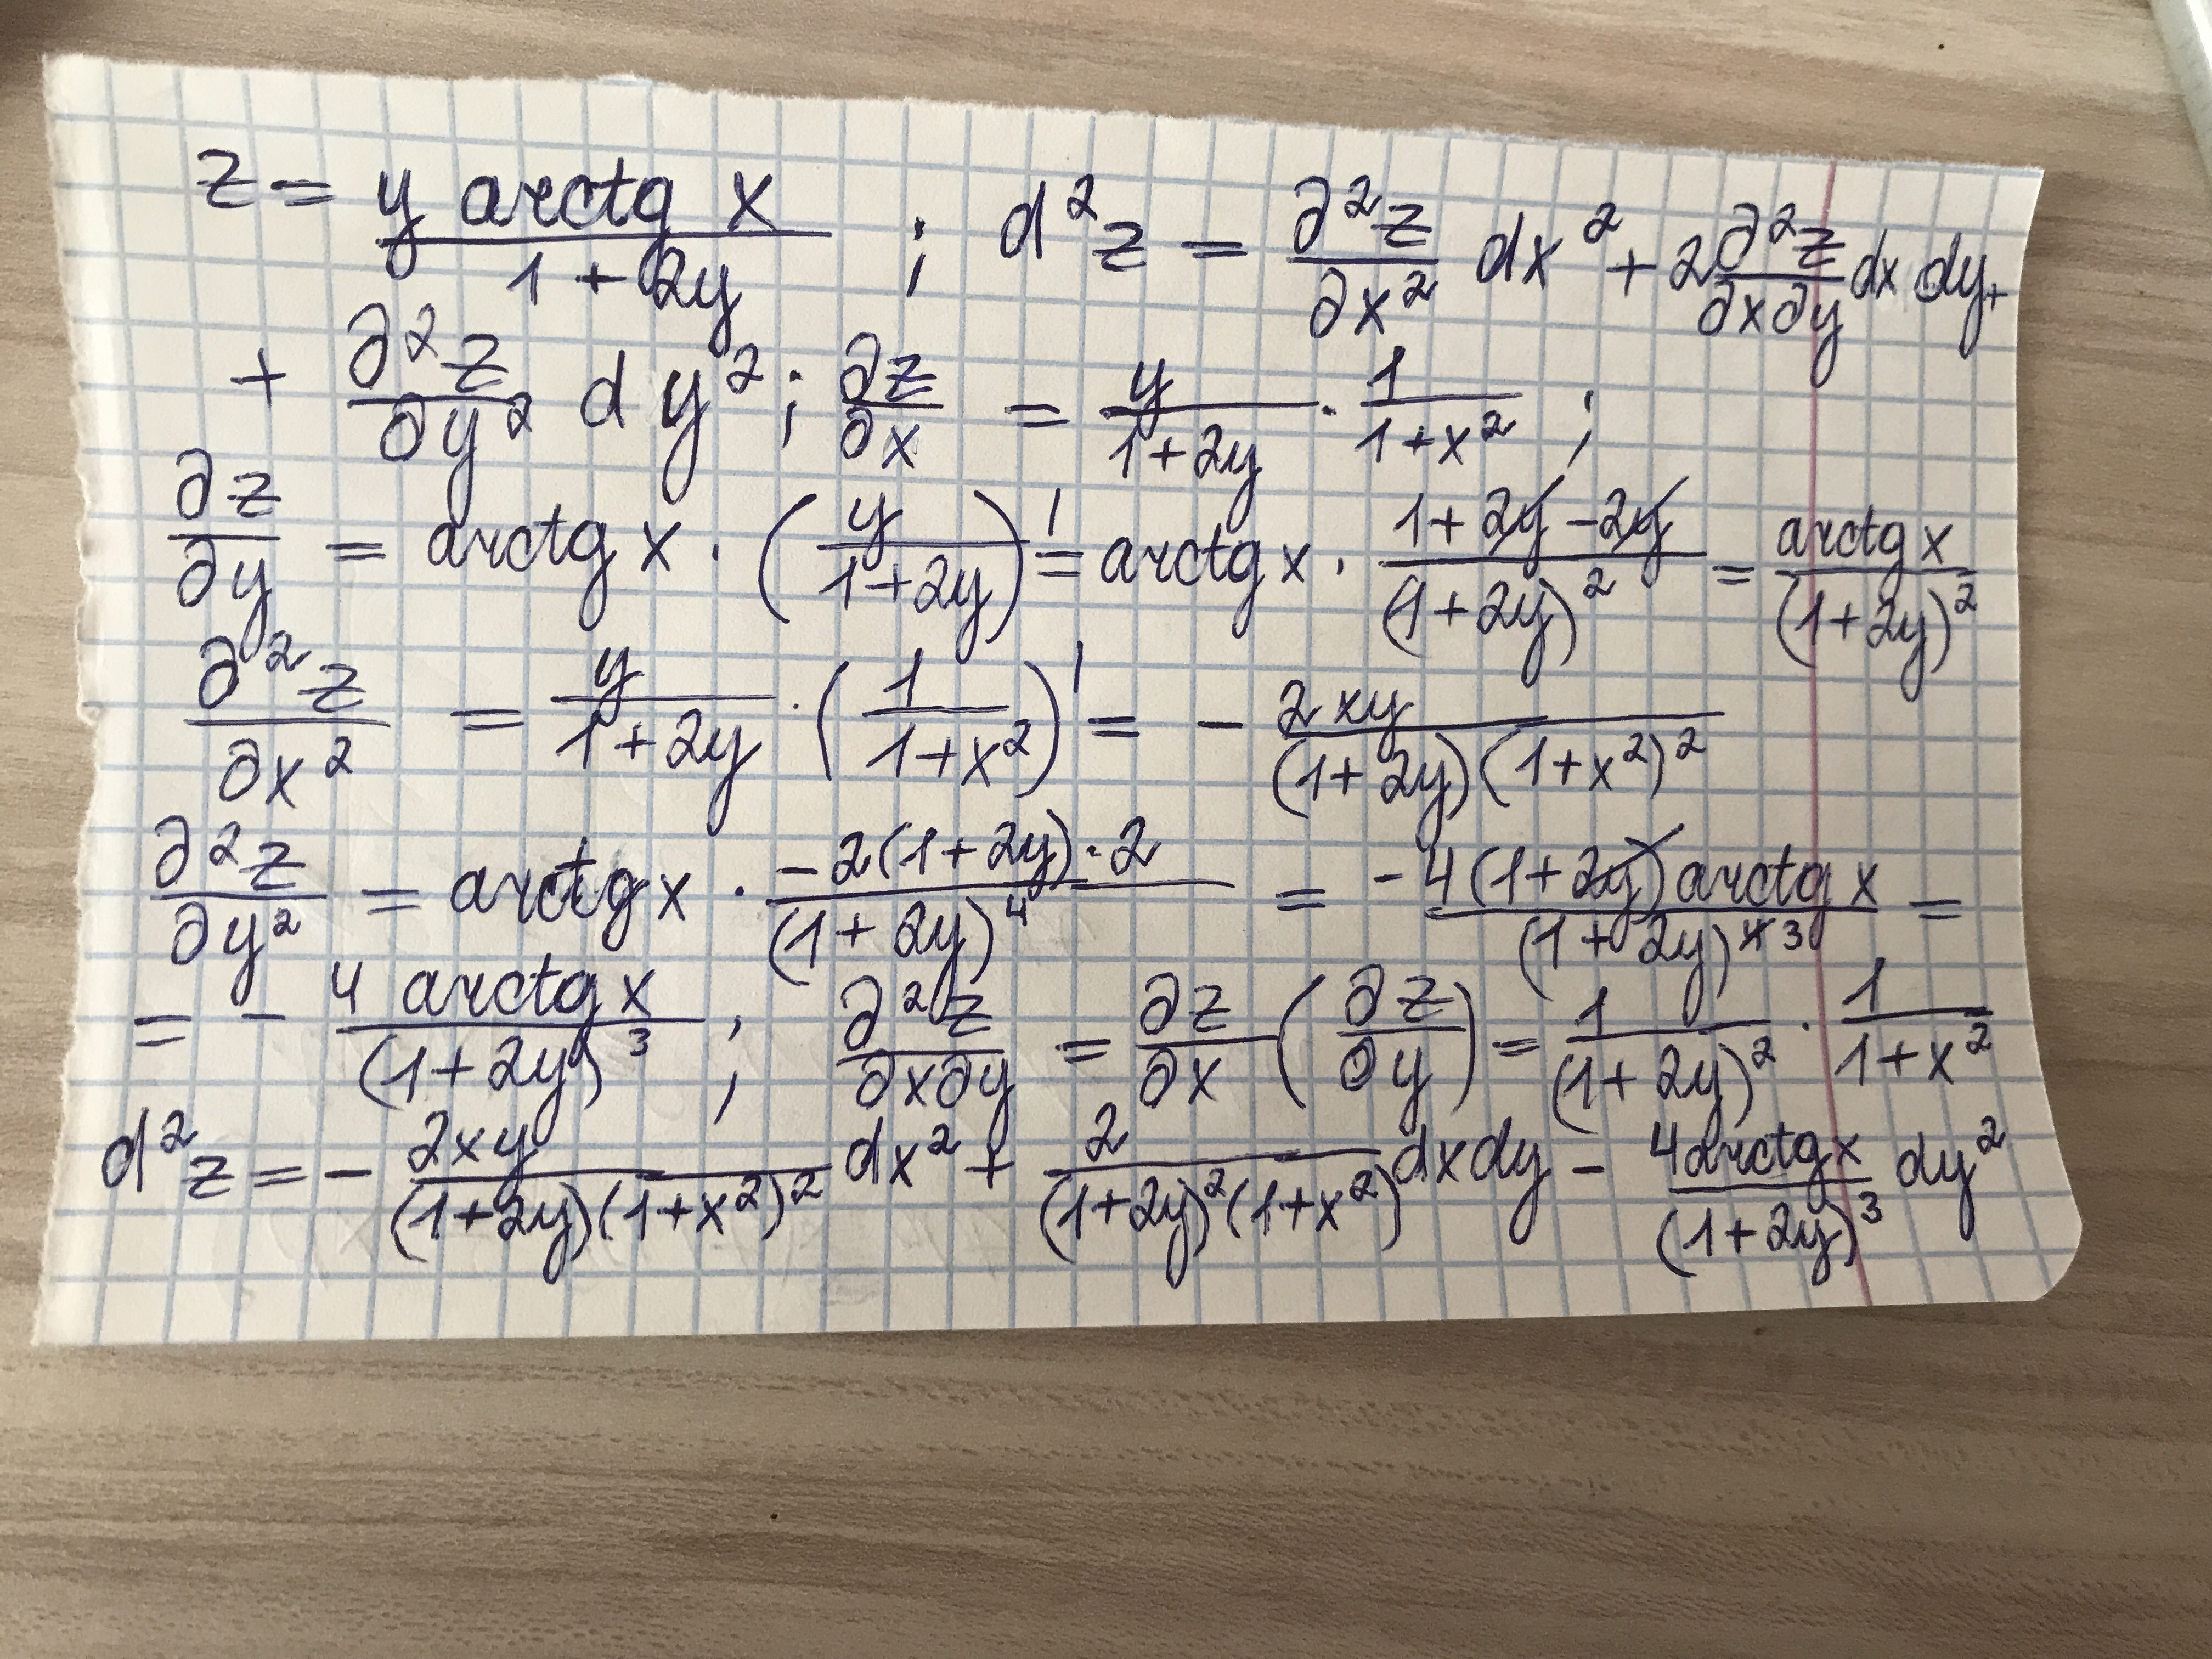 z = \frac{y arctg x}{1+2y} ; d^2z = \frac{∂^2z}{∂x^2} dx^2 + 2\frac{∂^2z}{∂x∂y} dx dy+
+ \frac{∂^2z}{∂y^2} dy^2; \frac{∂z}{∂x} = \frac{y}{1+2y} · \frac{1}{1+x^2} ;
\frac{∂z}{∂y} = arctg x · (\frac{y}{1+2y})' = arctg x · \frac{1+2y-2y}{(1+2y)^2} = \frac{arctg x}{(1+2y)^2}
\frac{∂^2z}{∂x^2} = \frac{y}{1+2y} · (\frac{1}{1+x^2})' = - \frac{2xy}{(1+2y)(1+x^2)^2}
\frac{∂^2z}{∂y^2} = arctg x · \frac{-2(1+2y)·2}{(1+2y)^4} = \frac{-4(1+2y) arctg x}{(1+2y)^{4 3}} =
= - \frac{4 arctg x}{(1+2y)^3} ; \frac{∂^2z}{∂x∂y} = \frac{∂z}{∂x} (\frac{∂z}{∂y}) = \frac{1}{(1+2y)^2} · \frac{1}{1+x^2}
d^2z = - \frac{2xy}{(1+2y)(1+x^2)^2} dx^2 + \frac{2}{(1+2y)^2(1+x^2)} dxdy - \frac{4arctg x}{(1+2y)^3} dy^2